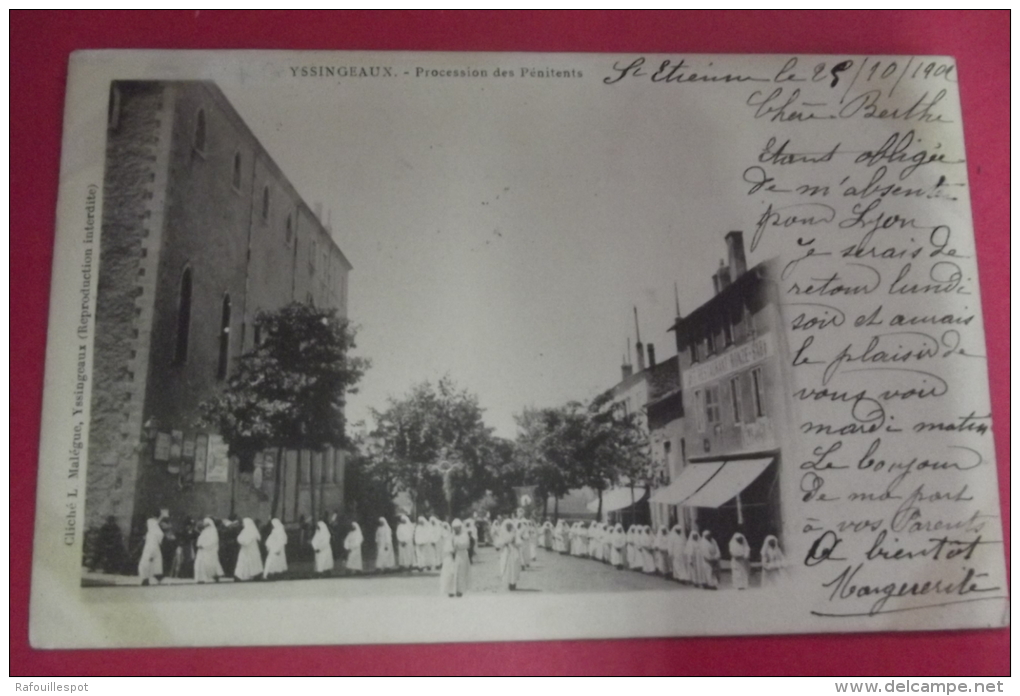 YSSINGEAUX. - Procession des Pénitents
St Etienne le 25/10/190
Chère Berthe
Etant obligée
de m'absenter
pour Lyon
je serais de
retour lundi
soir et aurais
le plaisir de
vous voir
mardi matin
Le bonjour
de ma part
à vos Parents
A bientôt
Marguerite
Cliché L. Malégue, Yssingeaux (Reproduction interdite)
RESTAURANT
Rafouillespot
www.delcampe.net